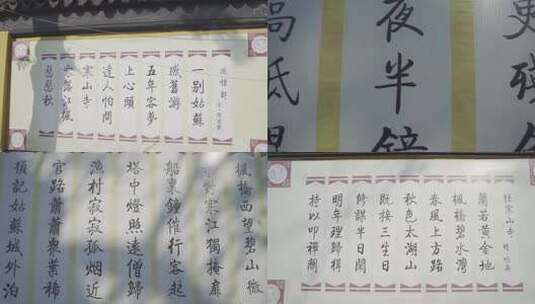 一别姑蘇
舊游
五年客夢
上心頭
人怕
寒山寺
江楓
愁秋
更殘
夜半鐘
高低
楓橋西望碧山微
寒江獨掩扉
船裏鐘催行客起
塔中燈照遠僧歸
漁村寂寂孤烟近
官路蕭蕭衆葉稀
須記姑蘇城外泊
寒山寺
蘭若黄金地
楓橋碧水灣
春風上方路
秋色太湖山
既接三生日
謀半日閒
明年理歸楫
持以叩禪關